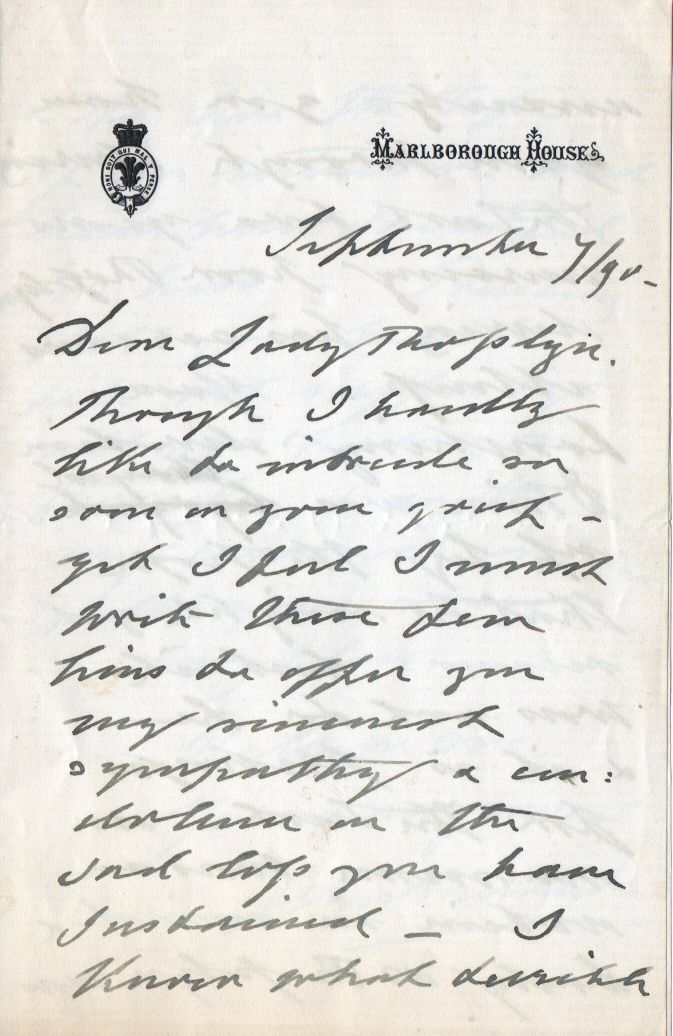 HONI SOIT QUI MAL Y PENSE
MARLBOROUGH HOUSE
September 7/90-
Dear Lady
Though I hardly
like to intrude so
soon on your grief -
yet I feel I must
write these few
lines to offer you
my sincerest
sympathy & con:
dolence on the
sad loss you have
sustained - I
know what